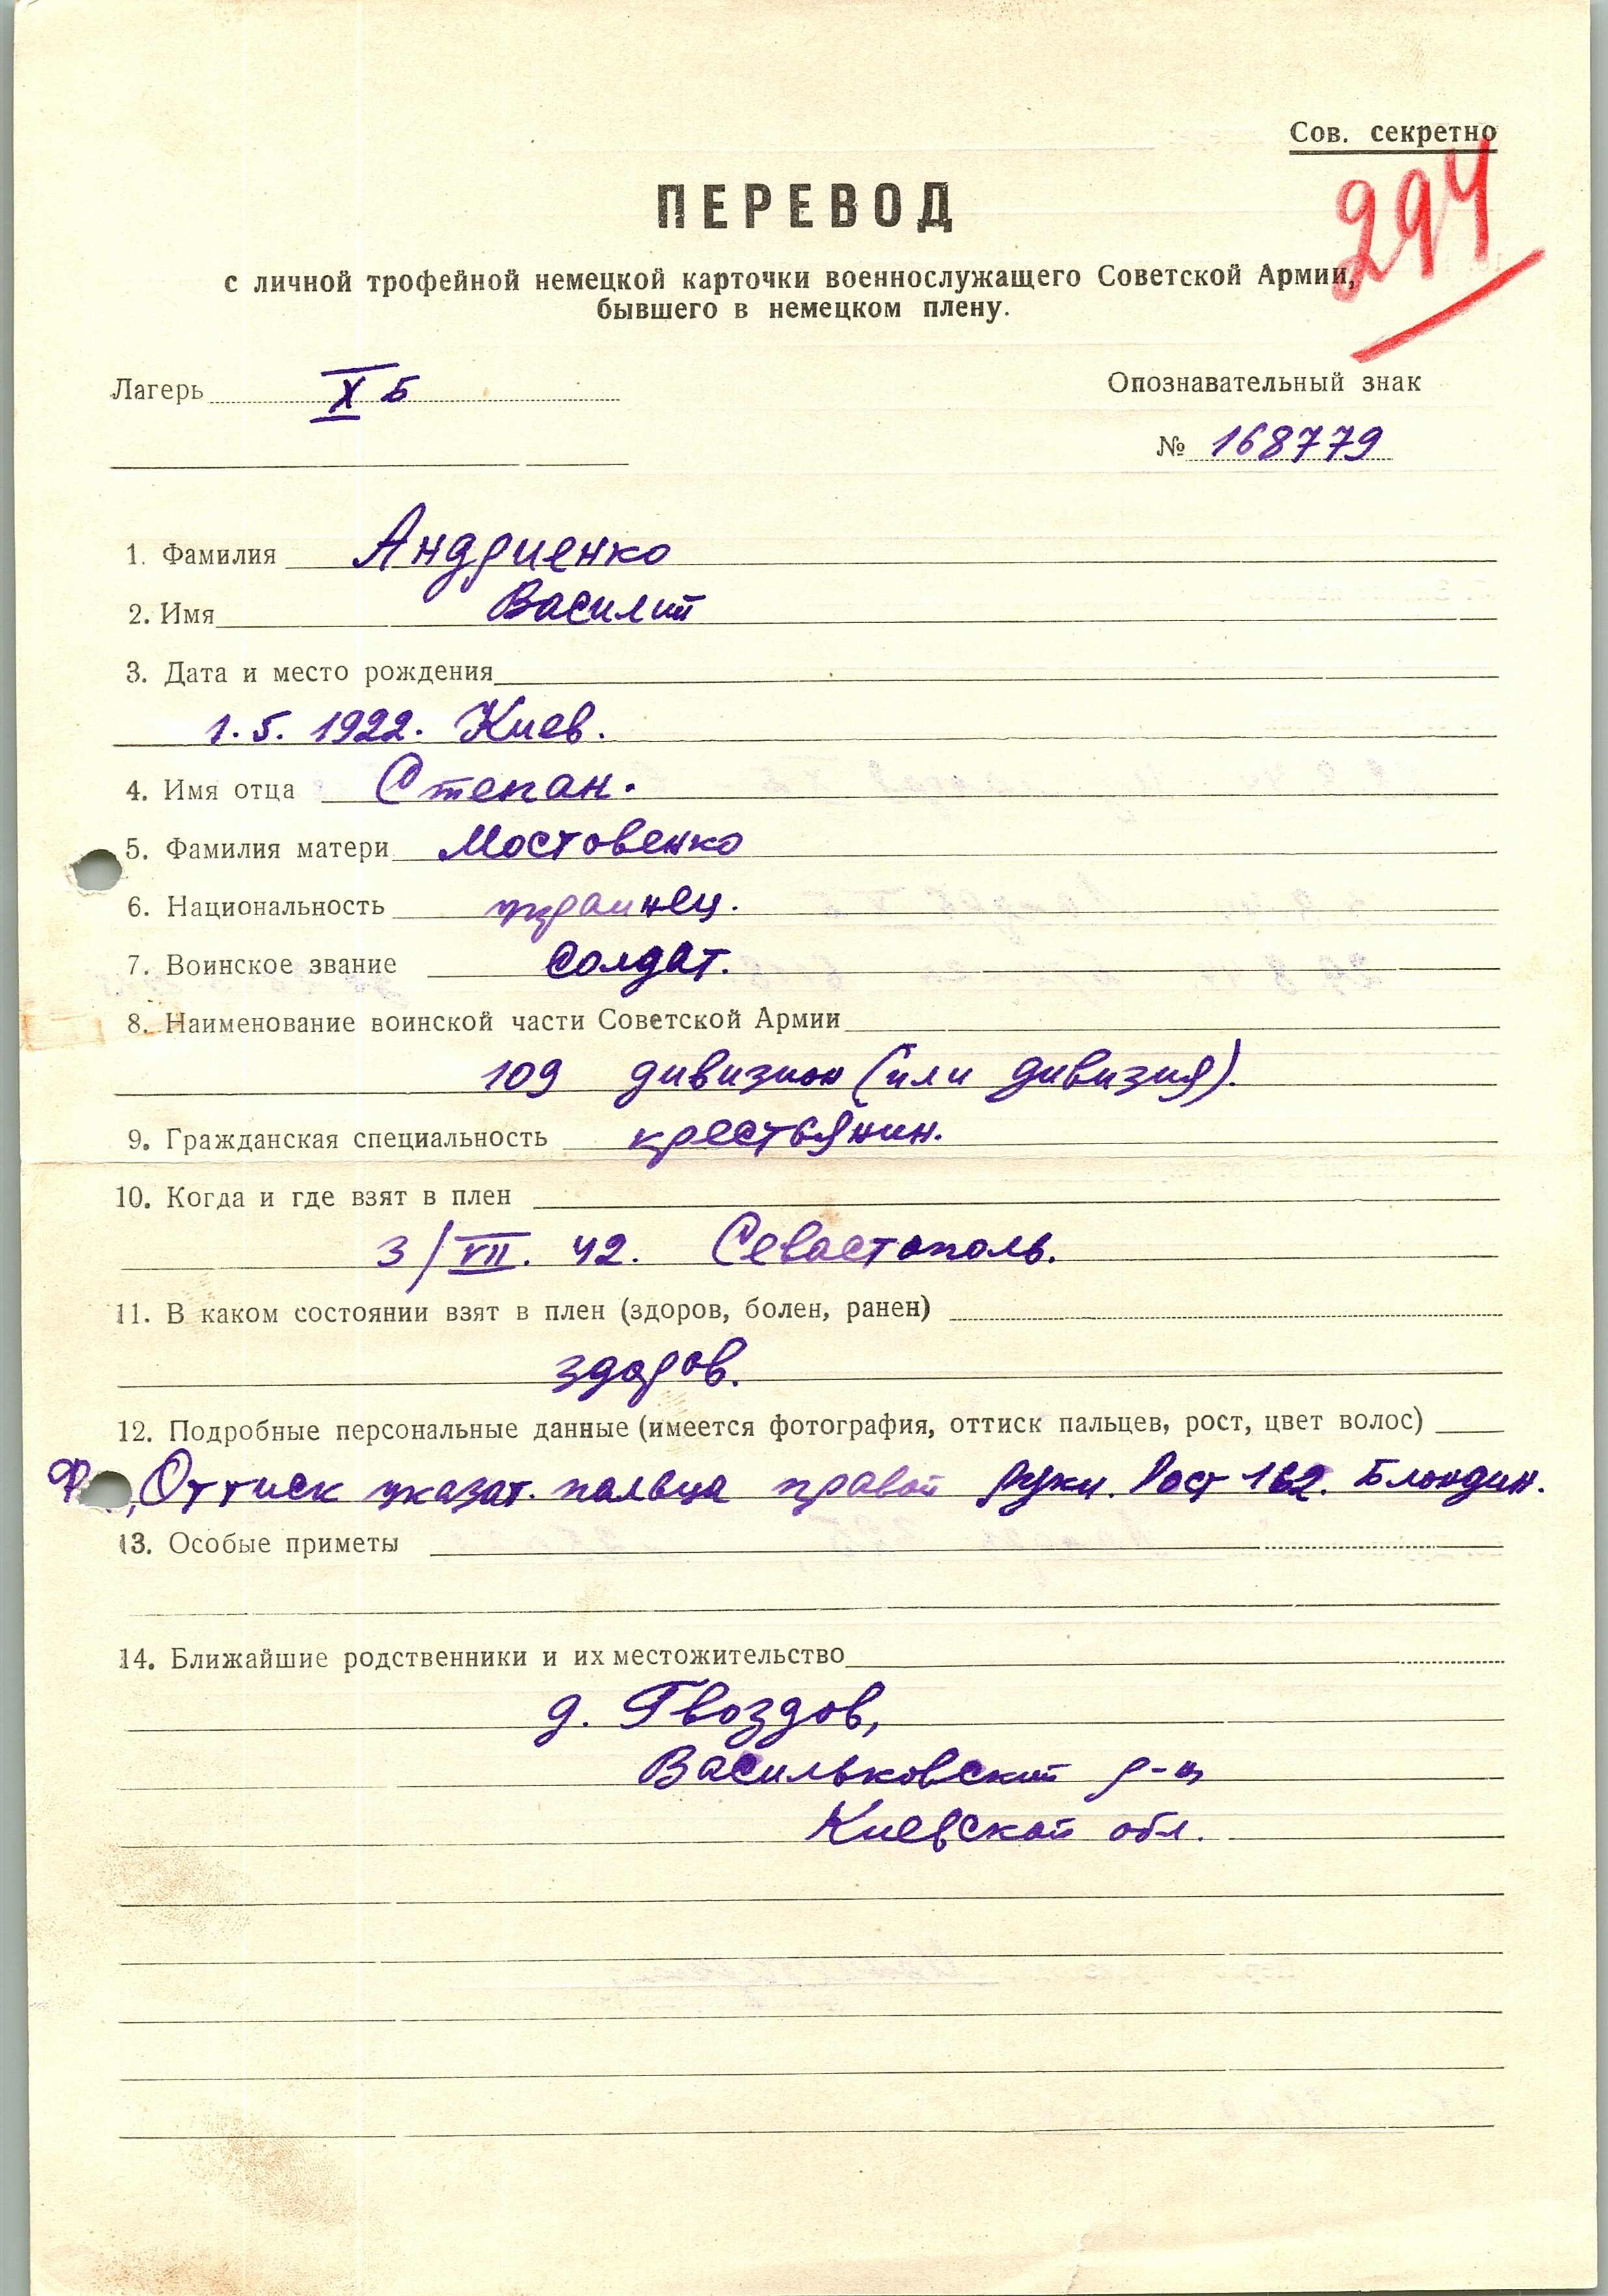 Сов. секретно
294
ПЕРЕВОД
с личной трофейной немецкой карточки военнослужащего Советской Армии,
бывшего в немецком плену.
Лагерь X Б
Опознавательный знак
№ 168779
1. Фамилия Андриенко
2. Имя Василий
3. Дата и место рождения
1.5.1922. Киев.
4. Имя отца Степан.
5. Фамилия матери Мостовенко
6. Национальность украинец.
7. Воинское звание солдат.
8. Наименование воинской части Советской Армии
109 дивизион (или дивизия).
9. Гражданская специальность крестьянин.
10. Когда и где взят в плен
3/VII. 42. Севастополь.
11. В каком состоянии взят в плен (здоров, болен, ранен)
здоров.
12. Подробные персональные данные (имеется фотография, оттиск пальцев, рост, цвет волос)
Оттиск указат. пальца правой руки. Рост 162. Блондин.
13. Особые приметы
14. Ближайшие родственники и их местожительство
д. Гвоздов,
Васильковский р-н
Киевской обл.